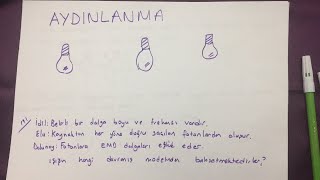 AYDINLANMA
Idil: Belirli bir dalga boyu ve frekansı vardır.
Ela: Kaynaktan her yöne doğru saçılan fotonlardan oluşur.
Fotonlara EMD dalgaları eşlik eder.
Işığın hangi davranış modelinden bahsetmektedirler?